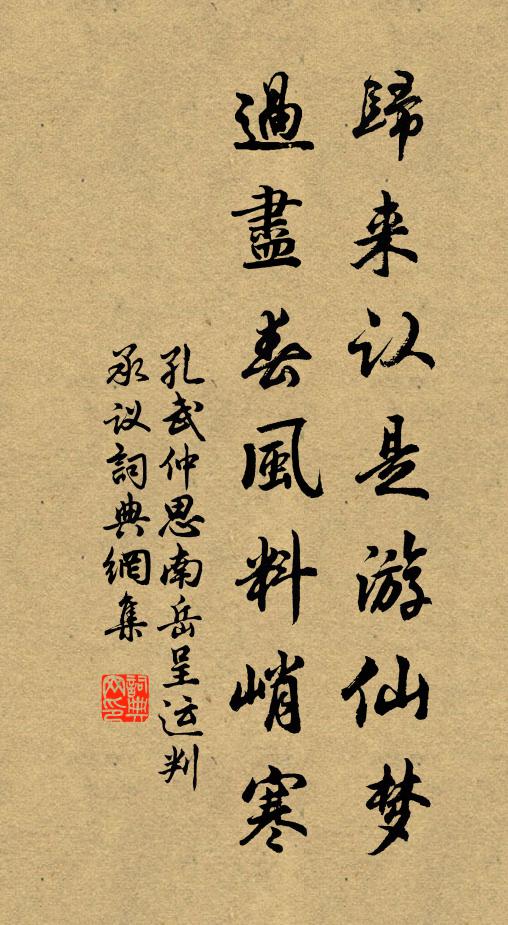 歸来认是游仙梦
過盡春風料峭寒
孔武仲思南岳呈运判
承议詞典網集
詞典